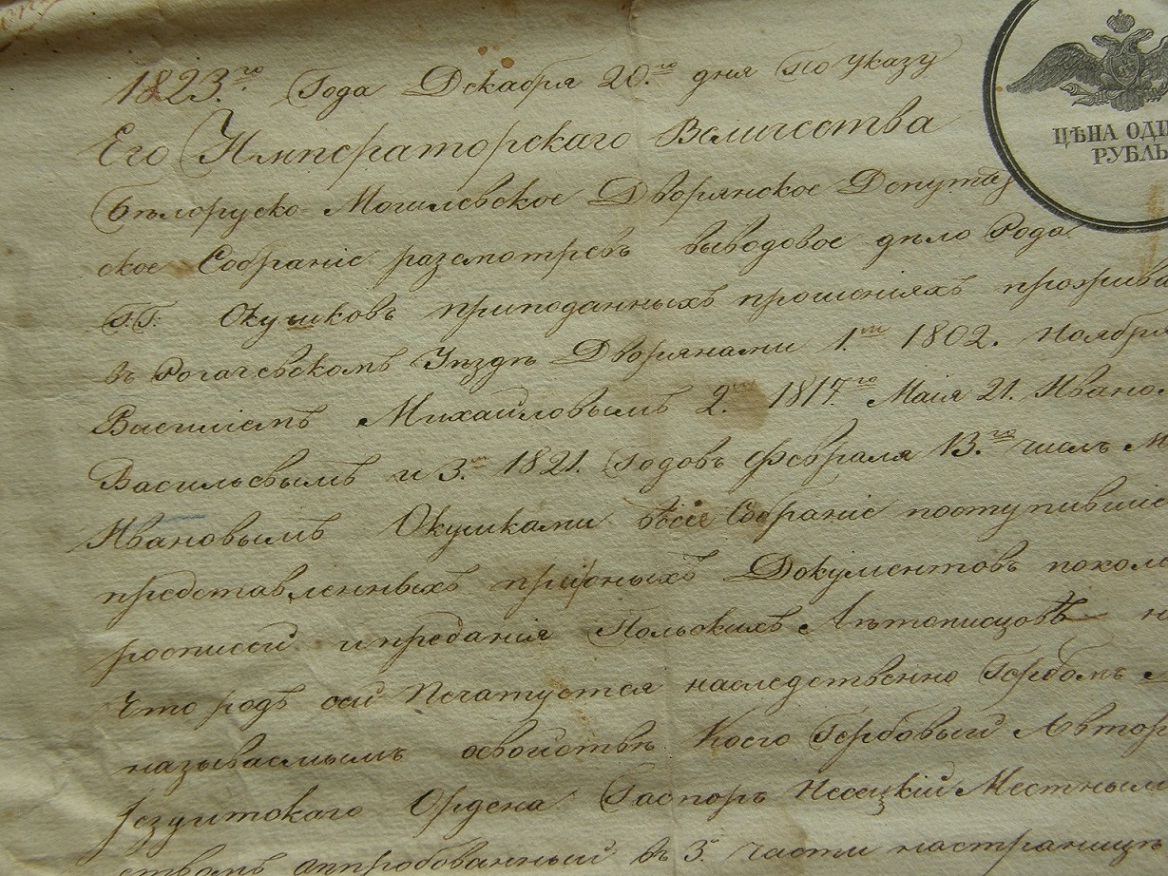 1823.го Года Декабря 20.го дня по указу
Его Императорскаго Величества
ЦѢНА ОДИ
РУБЛЬ
Бѣлоруско-Могилевское Дворянское Депутат
ское Собрание разсмотревъ выводовое дѣло Рода
Г.Г. Окушковъ приподанныхъ прошенияхъ прожива
въ Рогачевскомъ Уѣздѣ Дворянами 1.го 1802. Ноября
Василиемъ Михайловымъ 2.го 1817.го Маия 21. Ивано
Васильевымъ и 3.го 1821. Годовъ Февраля 13.го числъ М
Ивановымъ Окушками всие Собрание поступивши
представленныхъ Документовъ покол
росписи и предания Польскихъ Лѣтописцовъ н
Что родъ сей Печатуется наследственно Гербомъ
называемымъ освойствѣ Коего Гербовый Автор
Језуитскаго Ордена Гаспоръ Несецкий Местным
ствомъ аппробованный въ 3. части настраницѣ